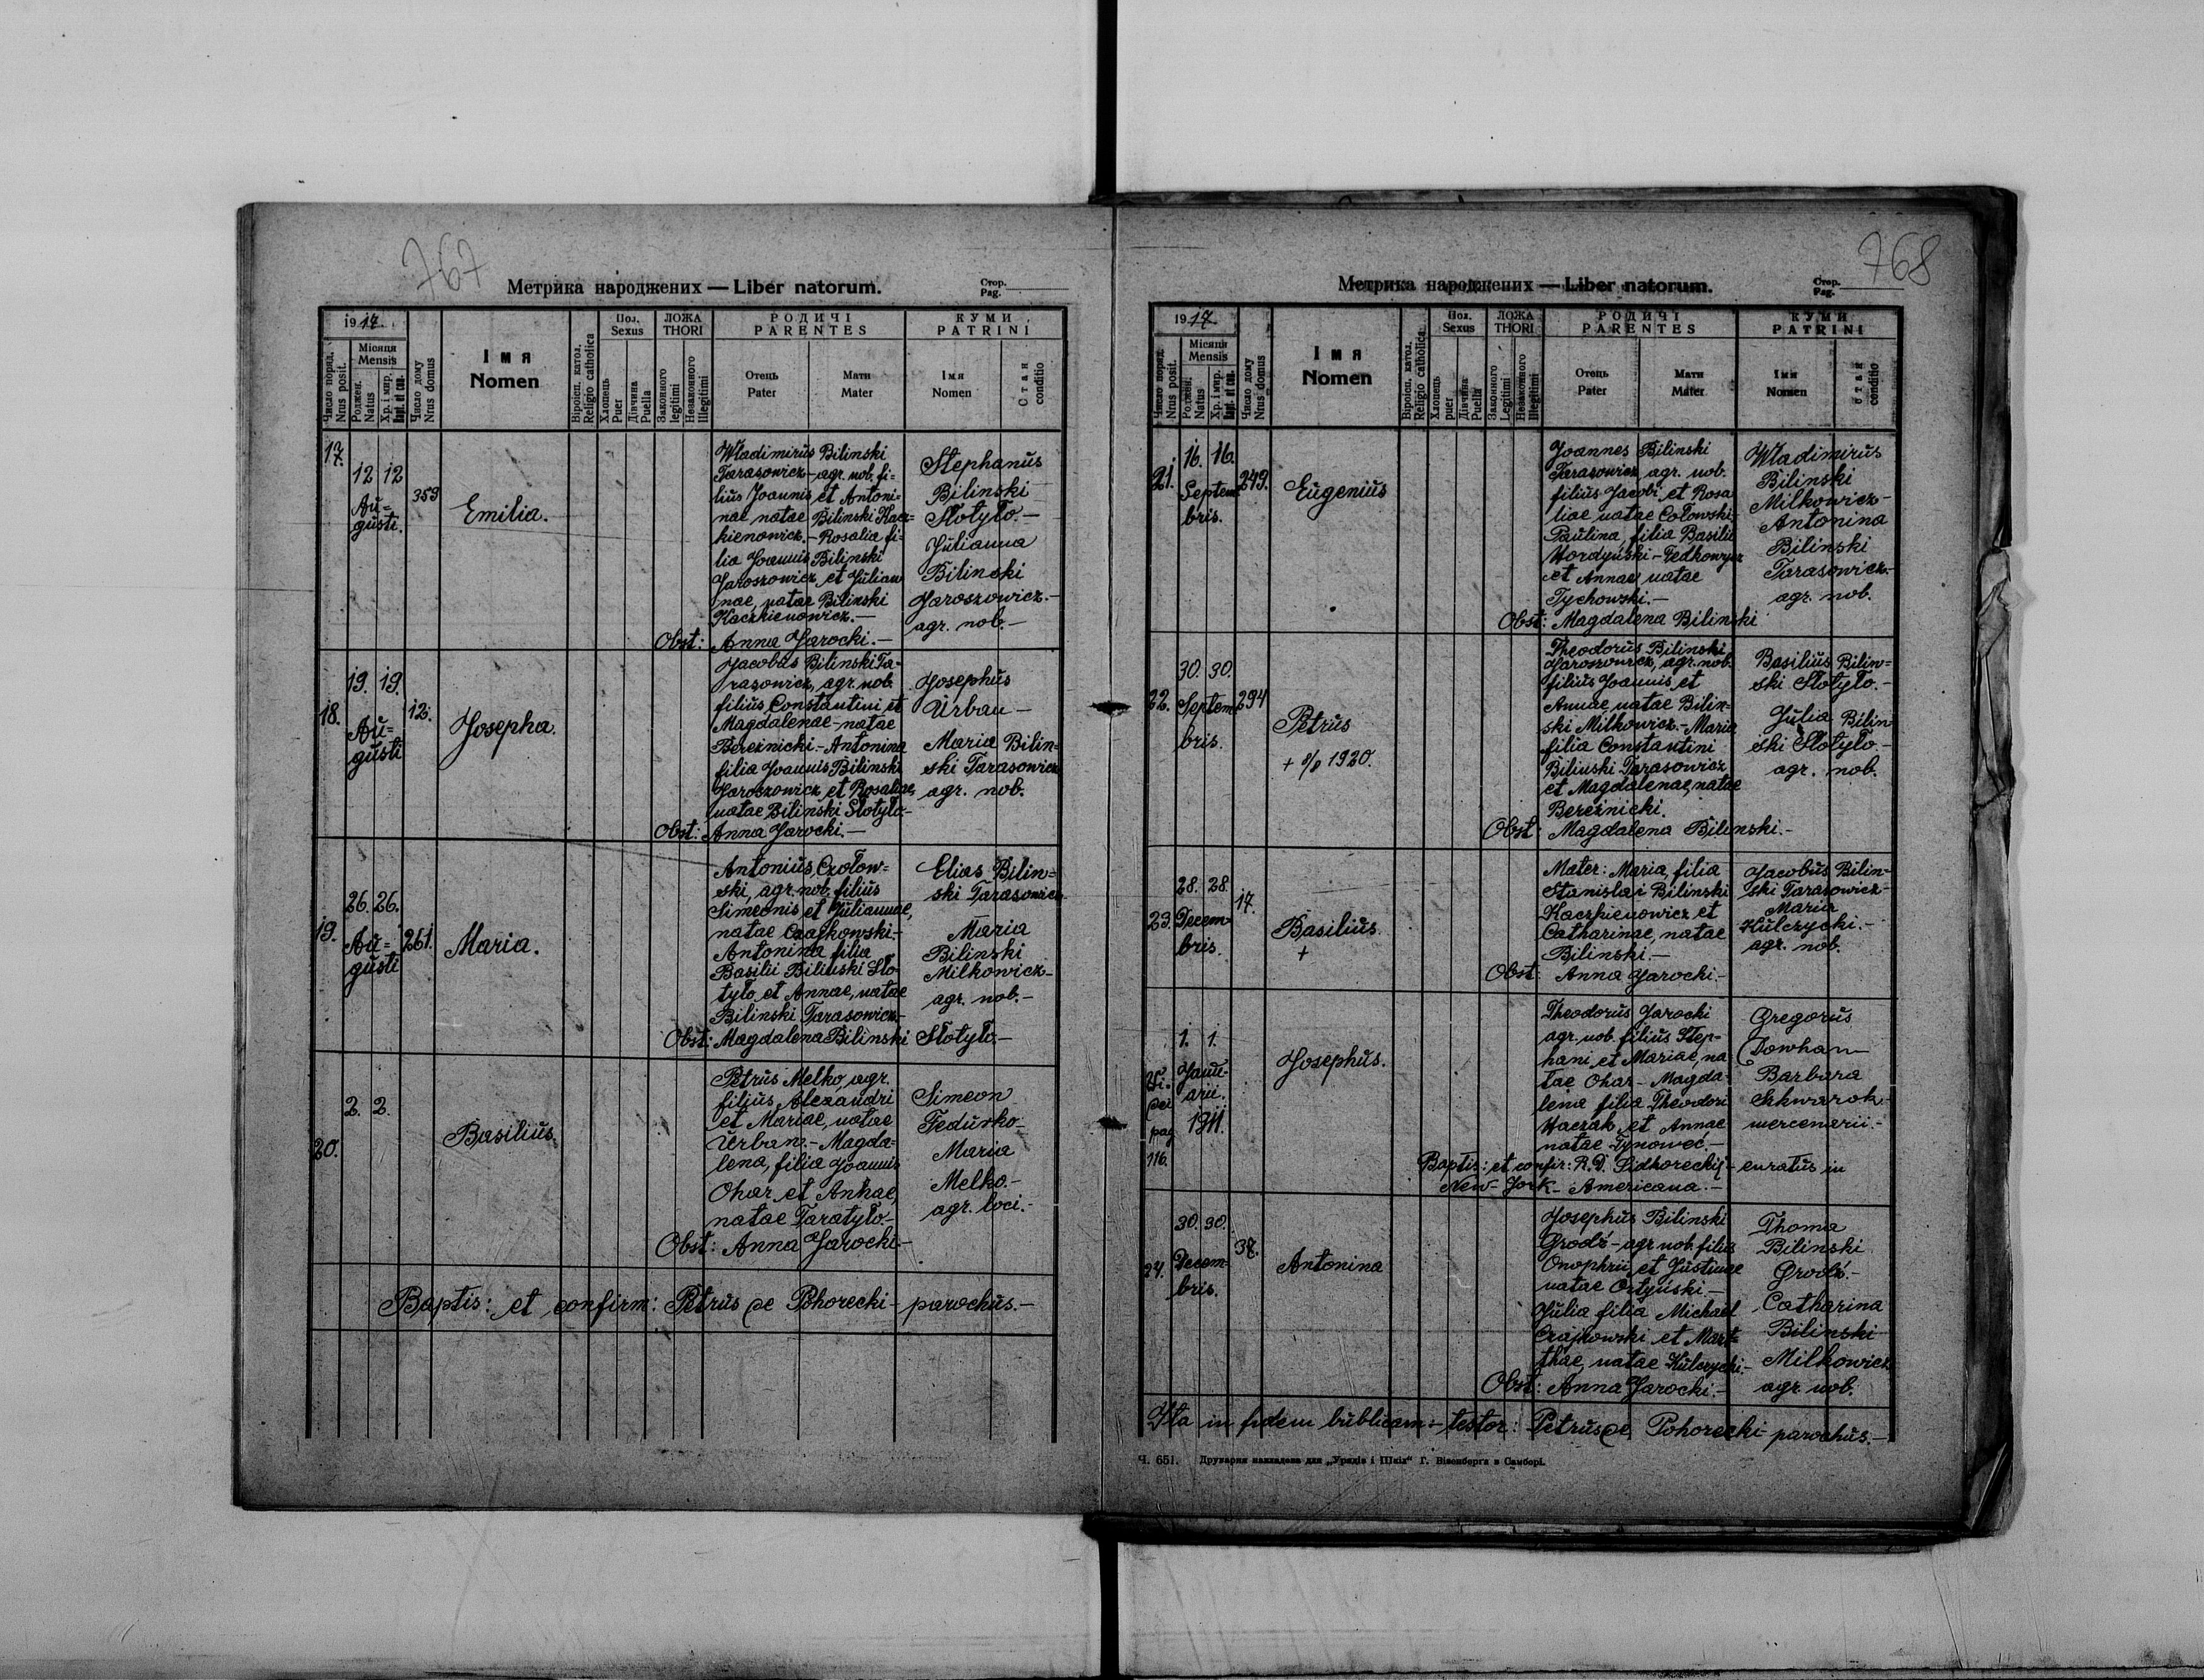 767
Метрика народжених — Liber natorum.
Стор.
Pag.
1917.
Число поряд.
Nrus posit.
Місяця
Mensis
Роджен.
Natus
Хр. і мир.
Bapt. et con.
Число дому
Nrus domus
Імя
Nomen
Віроісп. катол.
Religio catholica
Пол.
Sexus
Хлопець
Puer
Дівчина
Puella
ЛОЖА
THORI
Законного
legitimi
Незаконного
illegitimi
РОДИЧІ
PARENTES
Отець
Pater
Мати
Mater
КУМИ
PATRINI
Імя
Nomen
Стан
conditio
17.
12 12
Au=
gusti.
359
Emilia.
Wladimirus Bilinski
Tarasowicz-agr. nob. fi-
lius Joannis et Antoni=
nae natae Bilinski Kacz=
kienowicz.- Rosalia fi-
lia Joannis Bilinski
Jaroszowicz et Julian
nae, natae Bilinski
Kaczkienowicz.-
Obst: Anna Jarocki.-
Stephanus
Bilinski
Slotylo.-
Julianna
Bilinski
Jaroszowicz.-
agr. nob.-
18.
19. 19.
Au=
gusti
12.
Josepha.
Jacobus Bilinski Ta-
rasowicz, agr. nob.
filius Constantini et
Magdalenae-natae
Bereznicki.- Antonina
filia Joannis Bilinski
Jaroszowicz et Rosaliae,
natae Bilinski Slotylo-
Obst: Anna Jarocki.-
Josephus
Urban -
Maria Bilin=
ski Tarasowicz
agr. nob.
19.
26. 26.
Au=
gusti
261.
Maria.
Antonius Czolow=
ski, agr. nob. filius
Simeonis et Juliannae,
natae Czajkowski.-
Antonina filia
Basilii Bilinski Slo-
tylo et Annae, natae
Bilinski Tarasowicz.-
Obst: Magdalena Bilinski Slotylo.-
Elias Bilin=
ski Tarasowicz
Maria
Bilinski
Milkowicz-
agr. nob.-
20.
2. 2.
Basilius.
Petrus Melko, agr.
filius Alexandri
et Mariae, natae
Urban.- Magda=
lena, filia Joannis
Ohar et Annae,
natae Taratylo.-
Obst: Anna Jarocki.-
Simeon
Fedurko-
Maria
Melko.-
agr. loci.-
Baptis: et confirm: Petrus de Pohorecki - parochus.-
768
Метрика народжених — Liber natorum.
Стор.
Pag.
1917.
Число поряд.
Nrus posit.
Місяця
Mensis
Роджен.
Natus
Хр. і мир.
Bapt. et con.
Число дому
Nrus domus
Імя
Nomen
Віроісп. катол.
Religio catholica
Пол.
Sexus
Хлопець
puer
Дівчина
Puella
ЛОЖА
THORI
Законного
Legitimi
Незаконного
Illegitimi
РОДИЧІ
PARENTES
Отець
Pater
Мати
Mater
КУМИ
PATRINI
Імя
Nomen
Стан
conditio
21.
16. 16.
Septem
bris.
249.
Eugenius
Joannes Bilinski
Tarasowicz agr. nob.
filius Jacobi et Rosa
liae natae Colowski
Paulina, filia Basilii
Hordyński - Fedkowycz
et Annae, natae
Tychowski.-
Obst: Magdalena Bilinski
Wladimirus
Bilinski
Milkowicz-
Antonina
Bilinski
Tarasowicz-
agr. nob.
22.
30. 30.
Septem
bris.
294
Petrus
+ 1920.
Theodorus Bilinski
Jaroszowicz, agr. nob.
filius Joannis et
Annae, natae Bilin=
ski Milkowicz.- Maria
filia Constantini
Bilinski Tarasowicz
et Magdalenae, natae
Bereźnicki.
Obst: Magdalena Bilinski.-
Basilius Bilin=
ski Slotylo.-
Julia Bilin
ski Slotylo.-
agr. nob.
23.
28. 28.
Decem-
bris.
17.
Basilius.
+
Mater: Maria, filia
Stanislai Bilinski
Kaczkienowicz et
Catharinae, natae
Bilinski.-
Obst: Anna Jarocki.-
Jacobus Bilin-
ski Tarasowicz-
Maria
Kulczycki.-
agr. nob.
pag
116.
1. 1.
Janu-
arii.
1911.
Josephus.
Theodorus Jarocki
agr. nob. filius Step-
hani et Mariae, na
tae Ohar- Magda-
lena filia Theodori
Haczak et Annae
natae Tynoweć.-
Baptis: et confir: R. D. Lidhoreckij - curatus in
New-Jork- Americana.-
Gregorus
Dowhan-
Barbara
Shkwarok-
mercenarii.-
24.
30. 30.
Decem-
bris.
37.
Antonina
Josephus Bilinski
Grodź-agr nob. filius
Onophrii et Justinae
natae Ortyński.-
Julia filia Michael
Czajkowski et Mart=
thae, natae Kulczycki.-
Obst: Anna Jarocki.-
Thoma
Bilinski
Grodź.-
Catharina
Bilinski
Milkowicz
agr. nob.
Ita in fidem bublicam - testor: Petrus de Pohorecki- parochus.-
Ч. 651. Друкарня накладова для „Урядів і Шкіл" Г. Візенберга в Самборі.